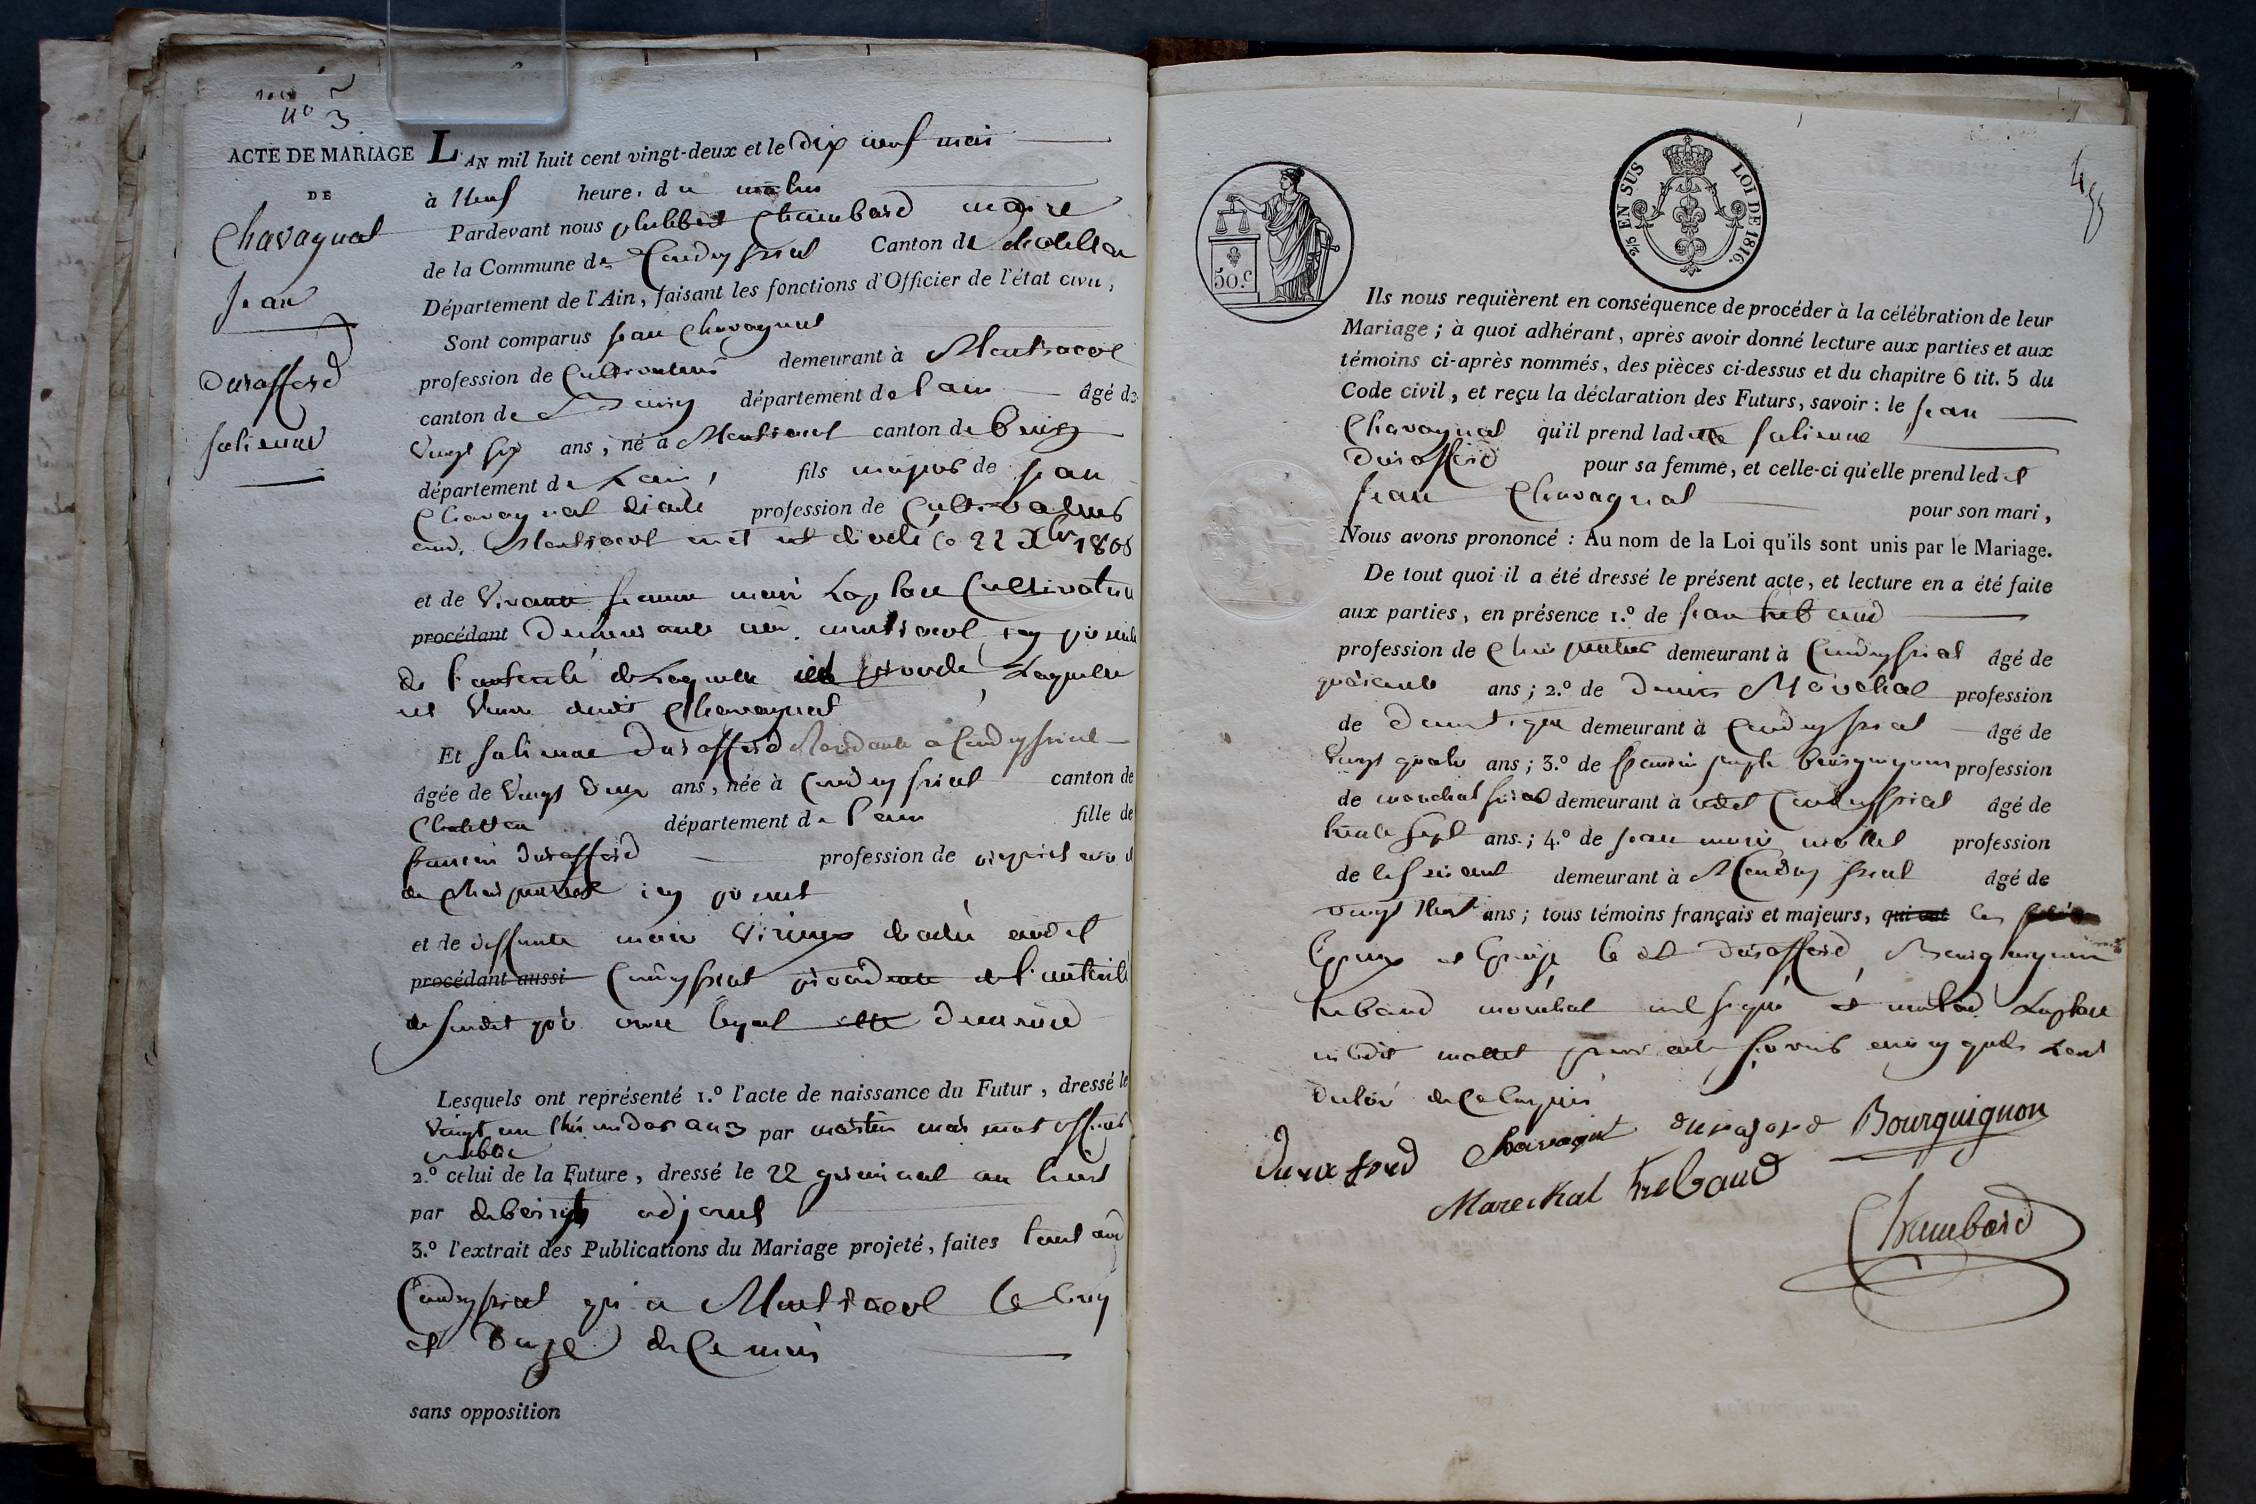 n.o 3
ACTE DE MARIAGE
DE
Chavagnat
Jean
Durafford
Julienne
L'AN mil huit cent vingt-deux et le dix neuf mai
à Neuf heure. du matin
Pardevant nous philibert Chambard maire
de la Commune de Condeyssiat Canton de Chatillon
Département de l'Ain, faisant les fonctions d'Officier de l'état civil,
Sont comparus Jean Chavagnat
profession de Cultivateur demeurant à Montracol
canton de Bourg département de l'ain âgé de
vingt six ans, né à Montracol canton de bourg
département de Lain, fils majeur de Jean
Chavagnat profession de Cultivateur
aud. Montracol décédé le 22 Xbr 1808
et de vivante jeanne marie Laplace Cultivatrice
procédant demeurante montracol
de l'autorité de Laquelle Laquelle
dudit Chavagnat
Et Julienne Durafford Residante a Condeyssiat
âgée de vingt deux ans, née à Condeyssiat canton de
Chatillon département de l'ain fille de
francois Durafford profession de
de Charpentier icy présent
et de deffunte marie décédée audit
procédant aussi Condeyssiat de l'autorité
de sondit père
Lesquels ont représenté 1.º l'acte de naissance du Futur, dressé le
vingt un thermidor an 3 par martin officier
public
2.º celui de la Future, dressé le 22 germinal an huit
par adjoint
3.º l'extrait des Publications du Mariage projeté, faites tant aud
Condeyssiat qu'a Montracol le cinq
et douze de ce mois
sans opposition
50.C
2/5 EN SUS LOI DE 1816.
Ils nous requièrent en conséquence de procéder à la célébration de leur
Mariage; à quoi adhérant, après avoir donné lecture aux parties et aux
témoins ci-après nommés, des pièces ci-dessus et du chapitre 6 tit. 5 du
Code civil, et reçu la déclaration des Futurs, savoir : le Jean
Chavagnat qu'il prend ladite Julienne
Durafford pour sa femme, et celle-ci qu'elle prend ledit
Jean Chavagnat pour son mari,
Nous avons prononcé : Au nom de la Loi qu'ils sont unis par le Mariage.
De tout quoi il a été dressé le présent acte, et lecture en a été faite
aux parties, en présence 1.º de Jean trebaud
profession de Charpentier demeurant à Condeyssiat âgé de
quarante ans; 2.º de Denis Maréchal profession
de domestique demeurant à Condeyssiat âgé de
vingt quatre ans; 3.º de francois joseph bourguignon profession
de marechal ferrant demeurant à Condeyssiat âgé de
trente sept ans; 4.º de jean marie mollet profession
de tisserant demeurant à Condeyssiat âgé de
vingt neuf ans; tous témoins français et majeurs, qui ont les
Epoux et Epouse le dit Durafford, Bourguignon
trebaud marechal ont signé et non lad. Laplace
ni ledit mollet pour ne le savoir enquis
de ce requis
Durafford Chavagnat durafard Bourguignon
Marechal trebaud
Chambard